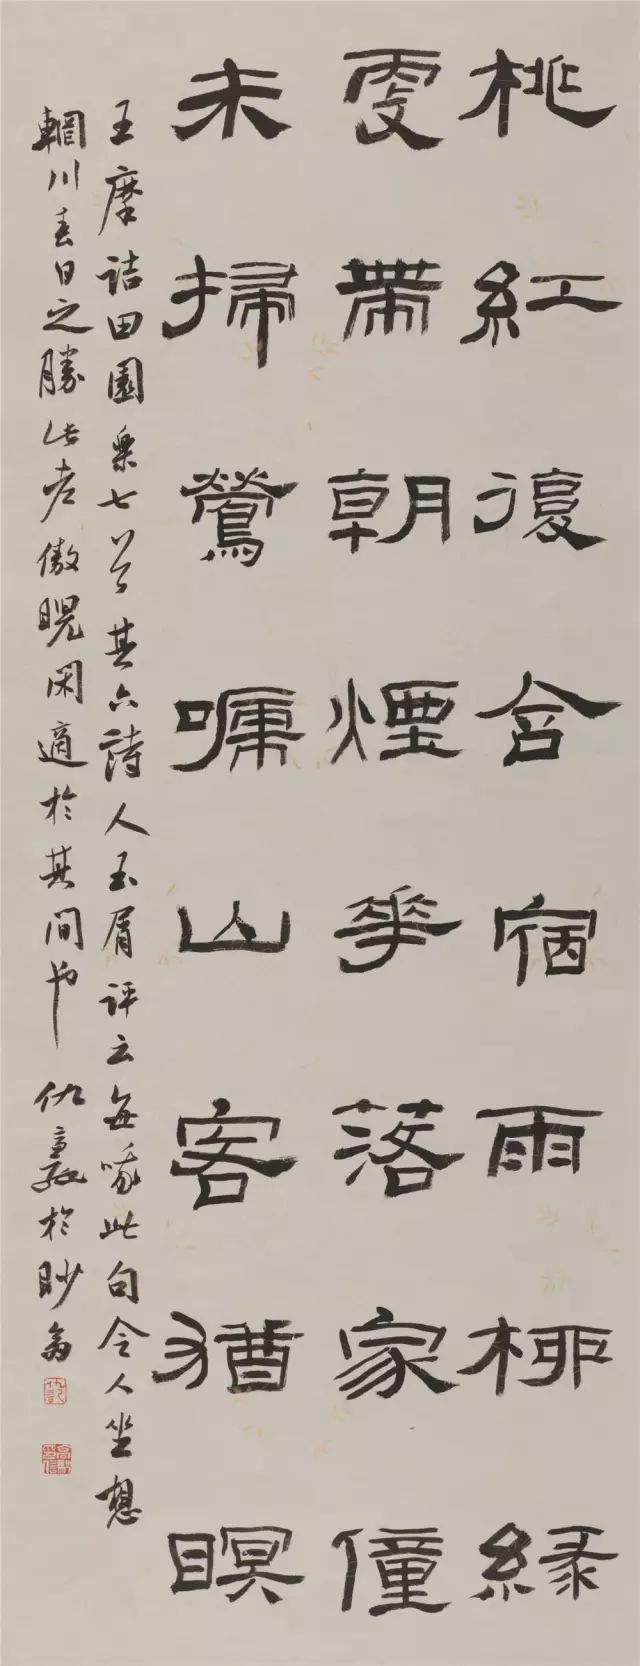 桃紅復含宿雨柳緑
更帶朝煙華落家僮
未掃鶯嗁山客猶瞑
王摩詰田園樂七首其六詩人玉屑評云每哦此句令人坐想
輞川春日之勝此老傲睨閑適於其間也 仇